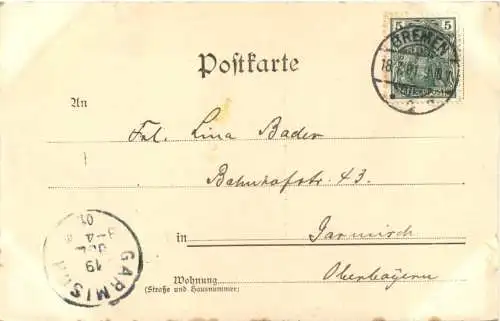 5 5
BREMEN
Postkarte
An
Frl. Lina Bader
Bahnhofstr. 43.
in Garmisch
Oberbayern
Wohnung
(Straße und Hausnummer)
GARMISCH
19